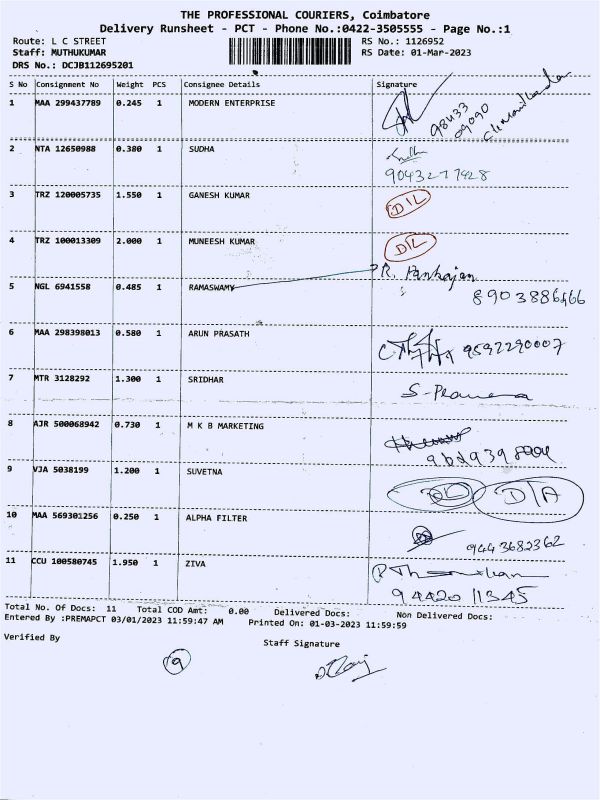 THE PROFESSIONAL COURIERS, Coimbatore
Delivery Runsheet - PCT - Phone No.:0422-3505555 - Page No.:1
Route: L C STREET RS No.: 1126952
Staff: MUTHUKUMAR RS Date: 01-Mar-2023
DRS No.: DCJB112695201
S No Consignment No Weight PCS Consignee Details Signature
1 MAA 299437789 0.245 1 MODERN ENTERPRISE
98433
09090
2 NTA 12650988 0.380 1 SUDHA
9043277928
3 TRZ 120005735 1.550 1 GANESH KUMAR D/L
4 TRZ 100013309 2.000 1 MUNEESH KUMAR D/L
R. Pankajan
5 NGL 6941558 0.485 1 RAMASWAMY
8903886466
6 MAA 298398013 0.580 1 ARUN PRASATH
9592290007
7 MTR 3128292 1.300 1 SRIDHAR
8 AJR 500068942 0.730 1 M K B MARKETING
9 VJA 5038199 1.200 1 SUVETNA
D/A
10 MAA 569301256 0.250 1 ALPHA FILTER
9443682362
11 CCU 100580745 1.950 1 ZIVA
94420 11345
Total No. Of Docs: 11 Total COD Amt: 0.00 Delivered Docs: Non Delivered Docs:
Entered By :PREMAPCT 03/01/2023 11:59:47 AM Printed On: 01-03-2023 11:59:59
Verified By Staff Signature
9